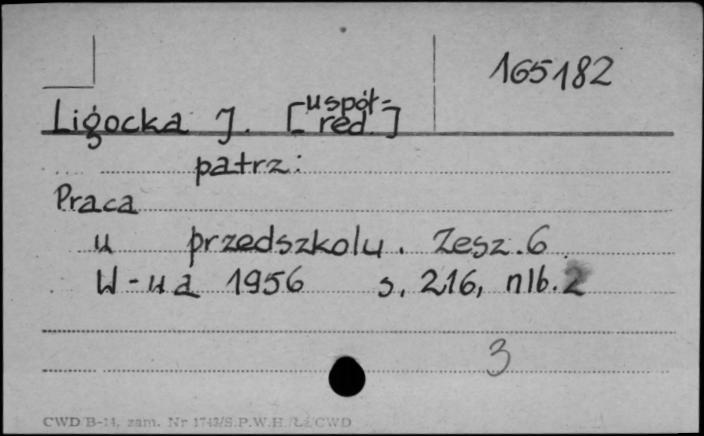 165182
Ligocka J. [współ=
red.]
patrz:
Praca
w przedszkolu. Zesz. 6.
W-wa 1956 s. 216, nlb. 2
3
CWD/B-14, zam. Nr 1743/S.P.W.H./Łź/CWD